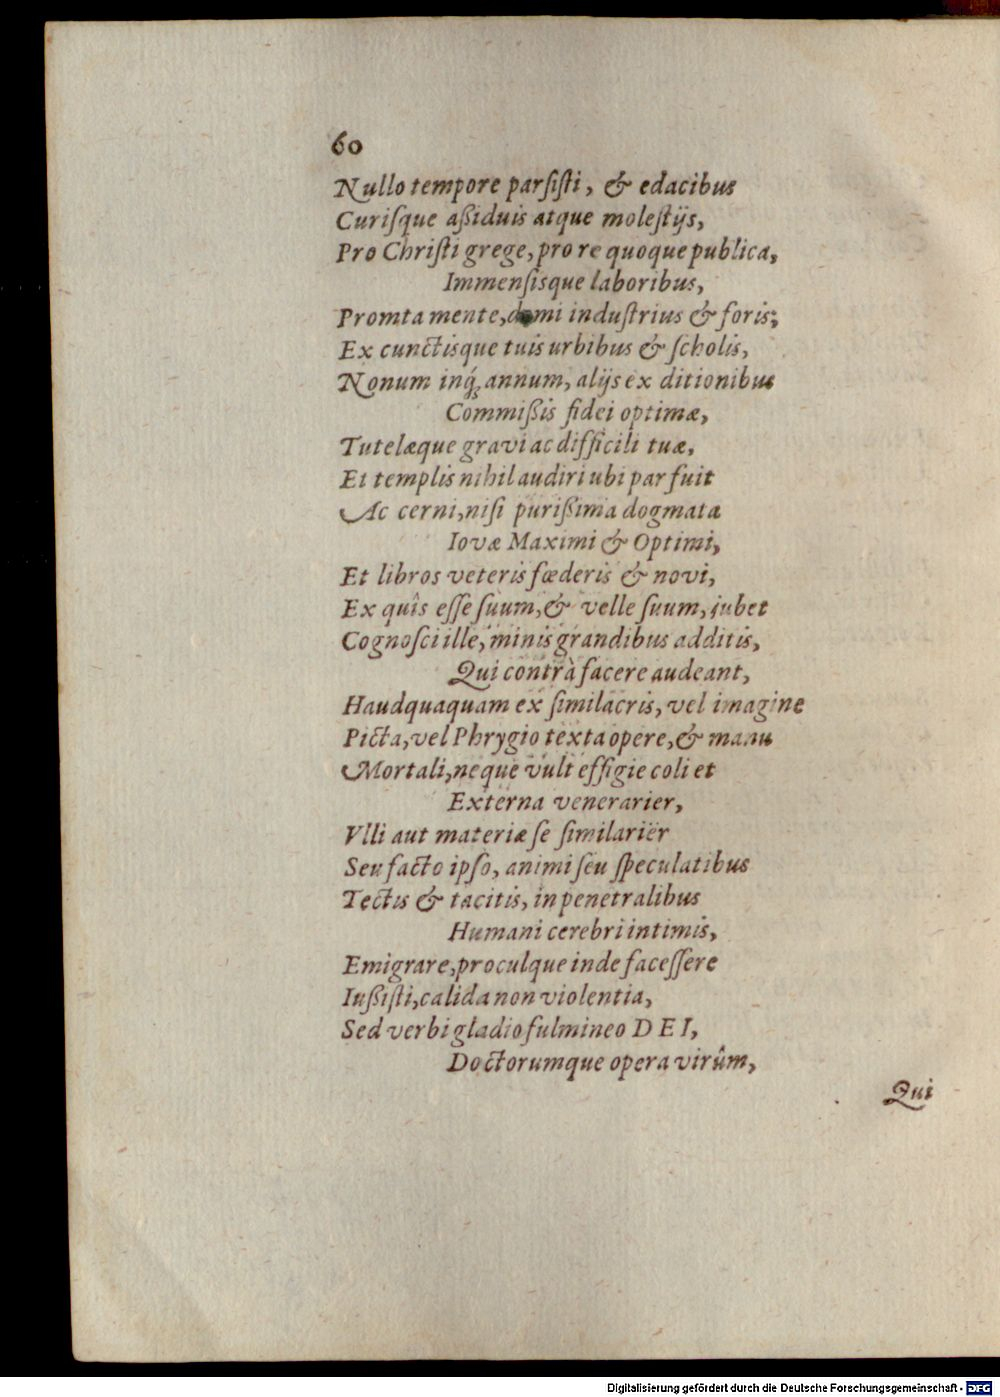 60
Nullo tempore parſiſti, & edacibus
Curiſque aßiduis atque moleſtijs,
Pro Chriſti grege, pro re quoque publica,
Immenſisque laboribus,
Promta mente, domi induſtrius & foris;
Ex cunctisque tuis urbibus & ſcholis,
Nonum inq́ annum, alijs ex ditionibus
Commißis fidei optimæ,
Tutelæque gravi ac difficili tuæ,
Et templis nihil audiri ubi par fuit
Ac cerni, niſi purißima dogmata
Iovæ Maximi & Optimi,
Et libros veteris fœderis & novi,
Ex quîs eſſe ſuum, & velle ſuum, jubet
Cognoſci ille, minis grandibus additis,
Qui contrà facere audeant,
Haudquaquam ex ſimilacris, vel imagine
Picta, vel Phrygio texta opere, & manu
Mortali, neque vult effigie coli et
Externa venerarier,
Vlli aut materiæ ſe ſimilariër
Seu facto ipſo, animi ſeu ſpeculatibus
Tectis & tacitis, in penetralibus
Humani cerebri intimis,
Emigrare, proculque inde faceſſere
Iußiſti, calida non violentia,
Sed verbi gladio fulmineo DEI,
Doctorumque opera virûm,
Qui
Digitalisierung gefördert durch die Deutsche Forschungsgemeinschaft - DFG